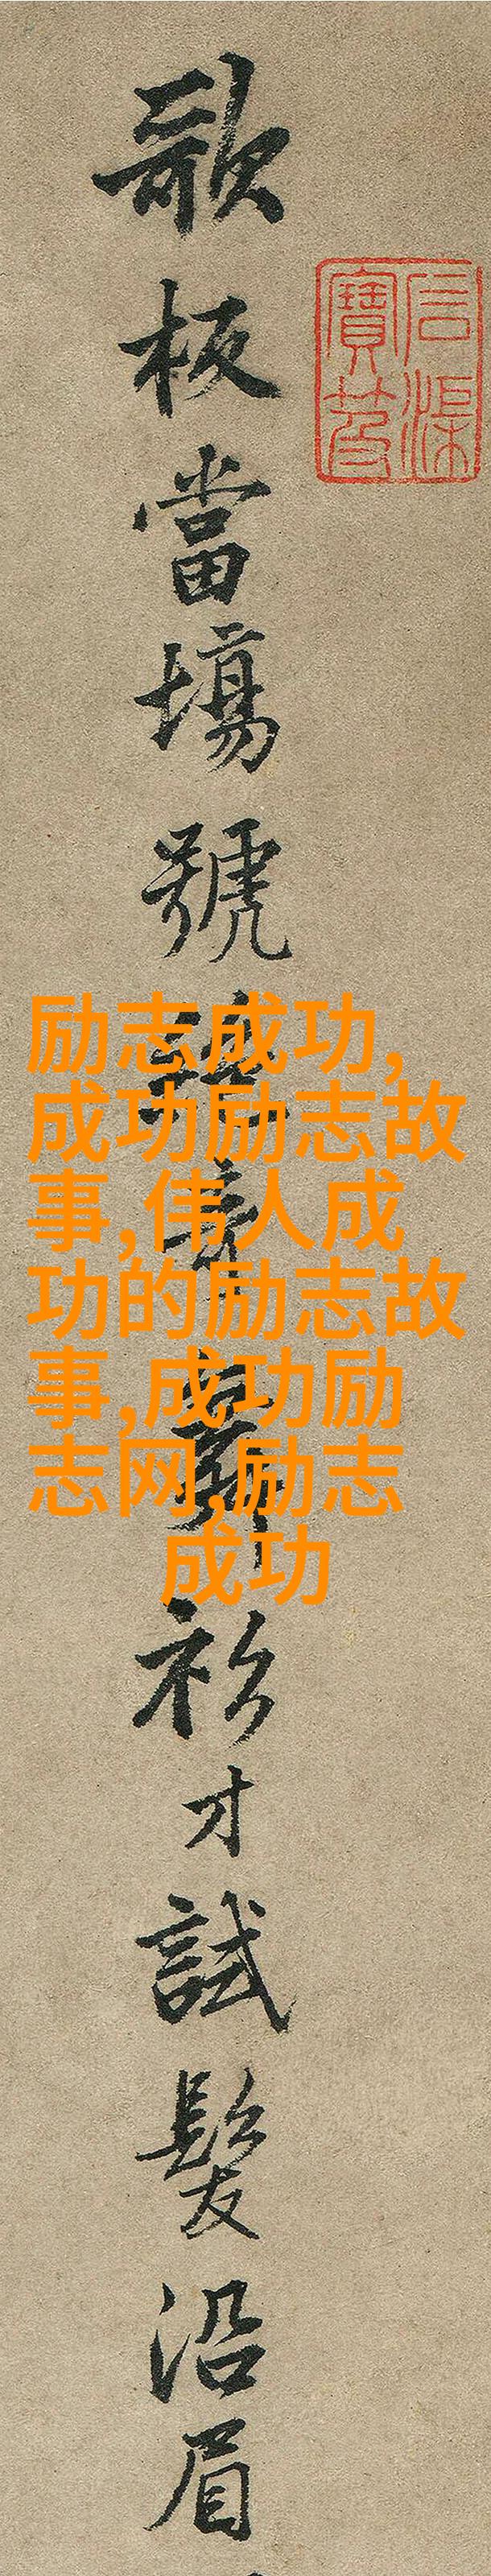 歌板當場號舞衫才試髮沿眉
石渠
寶笈
励志成功,
成功励志故
事,伟人成
功的励志故
事,成功励
志网,励志
成功